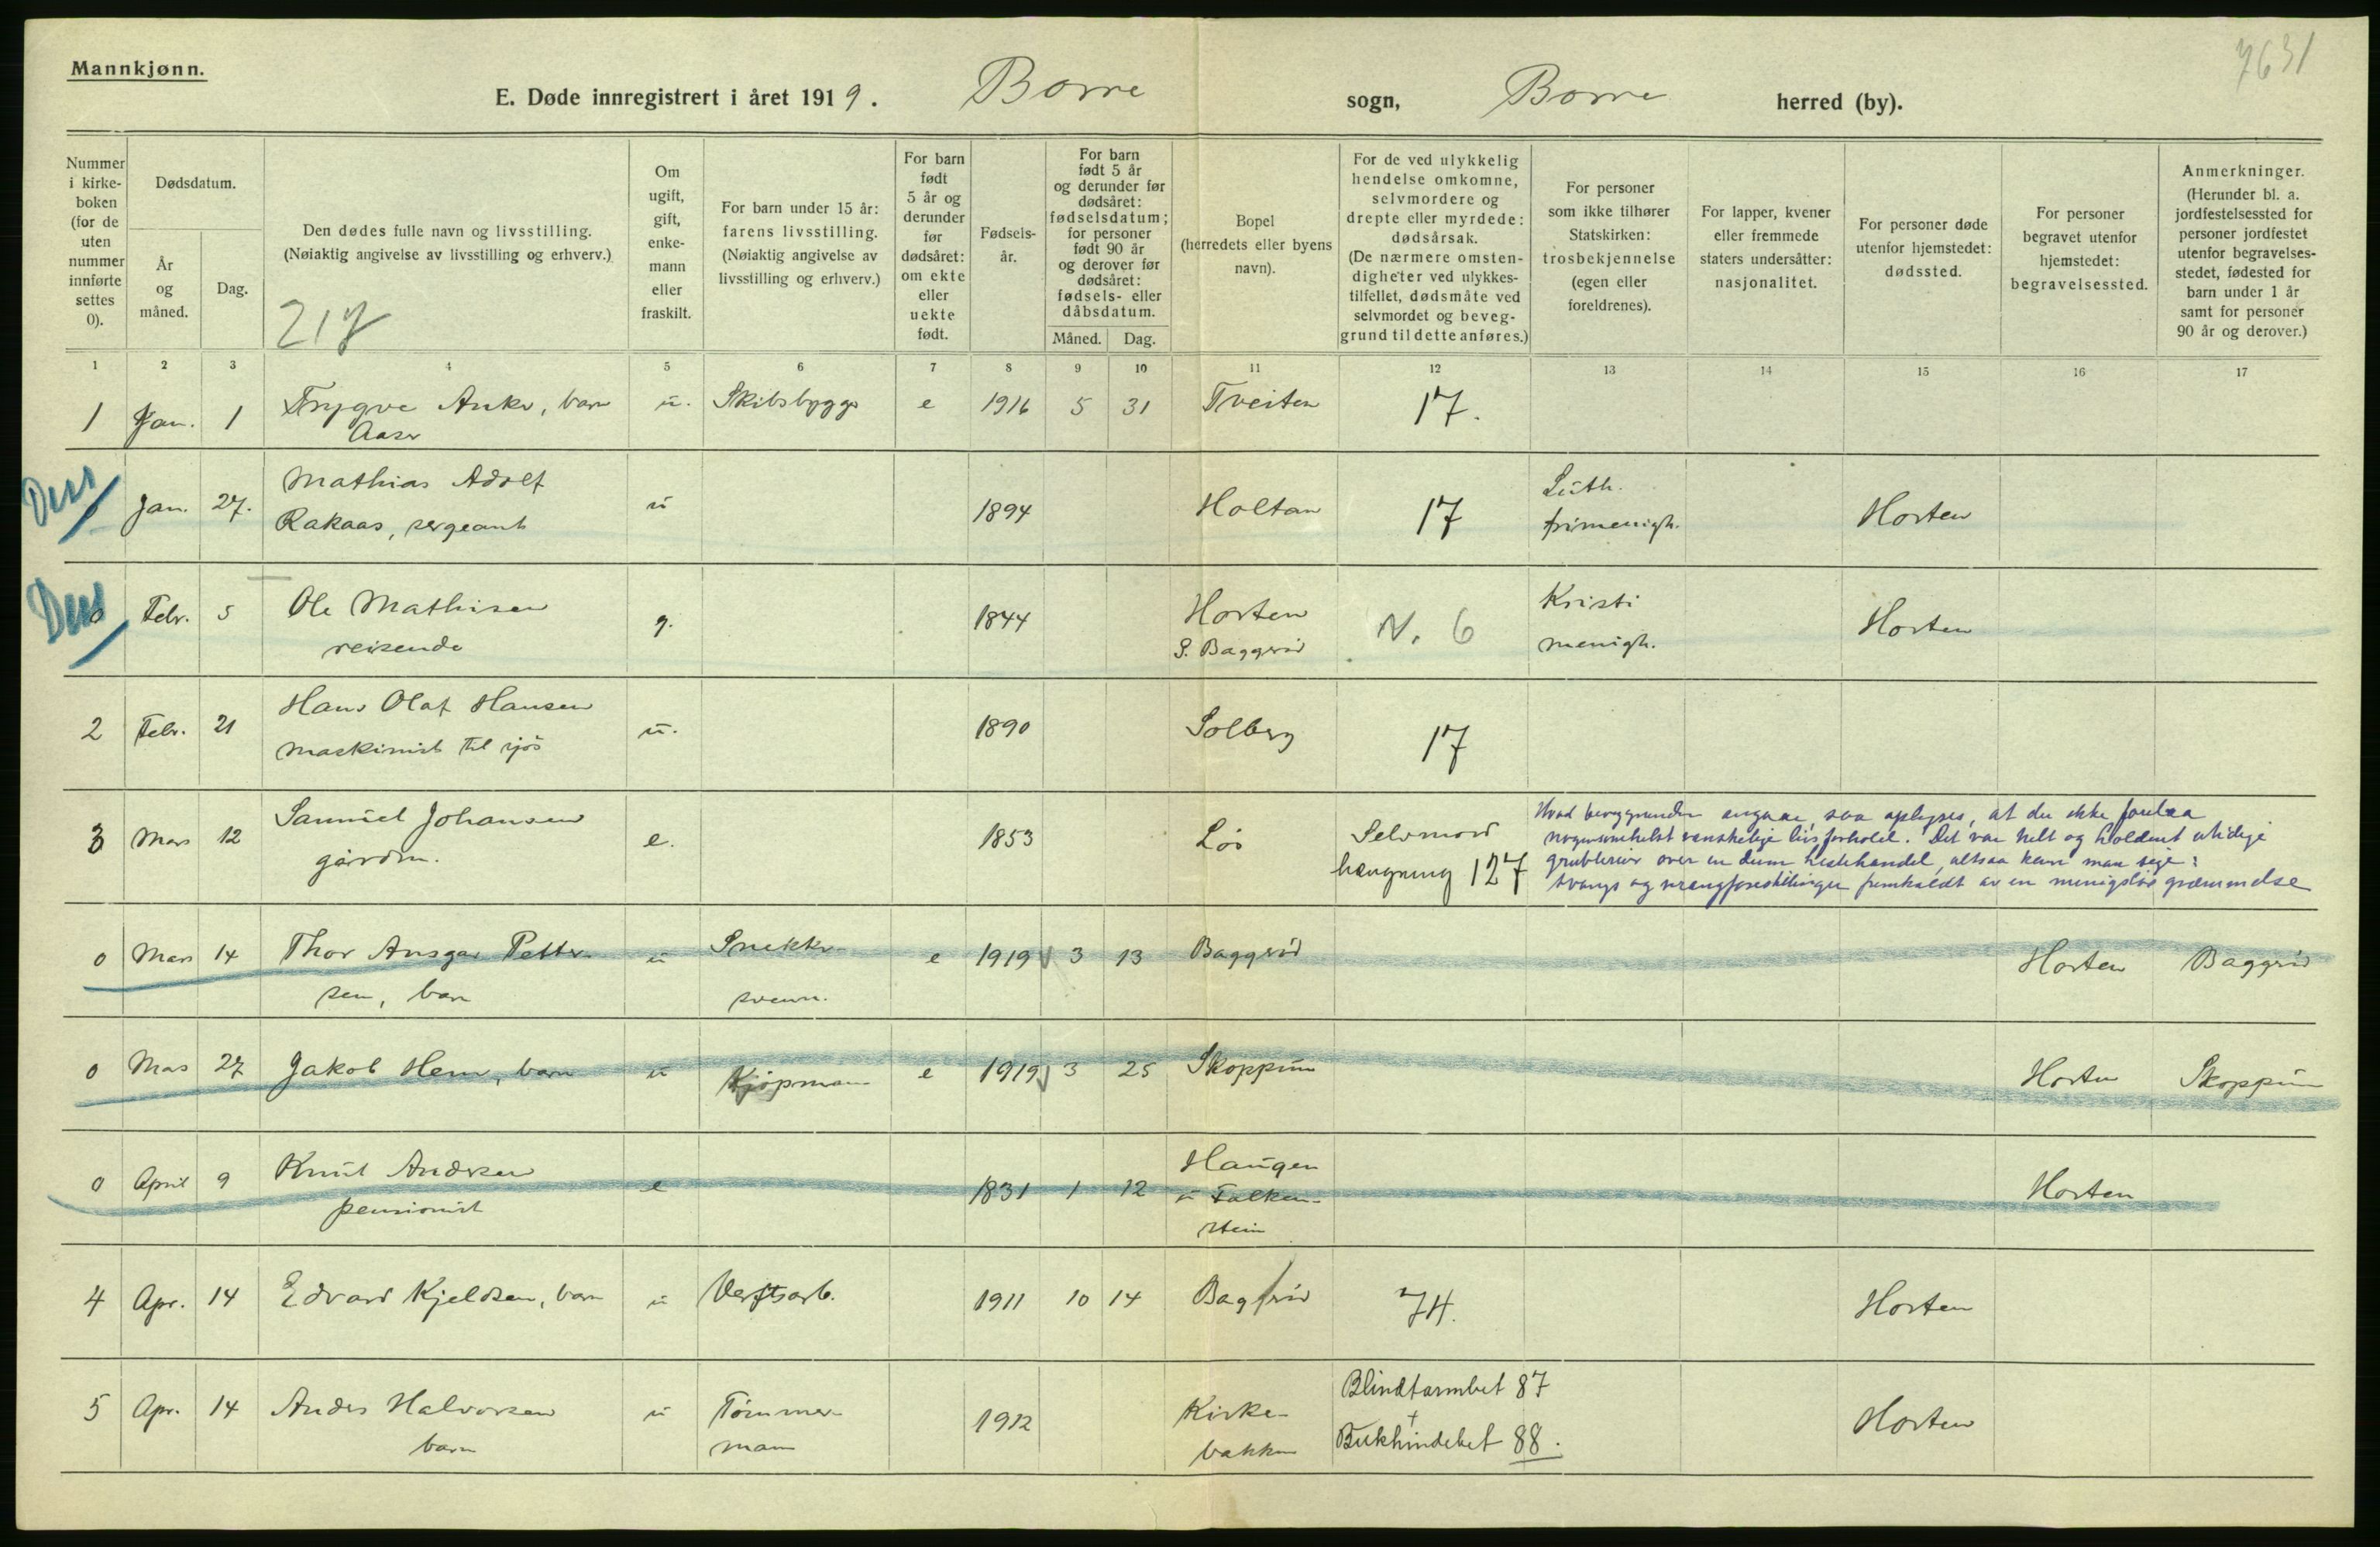 Mannkjønn.
7631
E. Døde innregistrert i året 1919. Borre sogn, Borre herred (by).
Nummer i kirke-boken (for de uten nummer innførte settes 0).
Dødsdatum.
År og måned.
Dag.
Den dødes fulle navn og livsstilling.
(Nøiaktig angivelse av livsstilling og erhverv.)
217
Om ugift, gift, enke-mann eller fraskilt.
For barn under 15 år: farens livsstilling. (Nøiaktig angivelse av livsstilling og erhverv.)
For barn født 5 år og derunder før dødsåret: om ekte eller uekte født.
Fødsels-år.
For barn født 5 år og derunder før dødsåret: fødselsdatum; for personer født 90 år og derover før dødsåret: fødsels- eller dåbsdatum.
Måned. Dag.
Bopel (herredets eller byens navn).
For de ved ulykkelig hendelse omkomne, selvmordere og drepte eller myrdede: dødsårsak. (De nærmere omsten-digheter ved ulykkes-tilfellet, dødsmåte ved selvmordet og beveg-grund til dette anføres.)
For personer som ikke tilhører Statskirken: trosbekjennelse (egen eller foreldrenes).
For lapper, kvener eller fremmede staters undersåtter: nasjonalitet.
For personer døde utenfor hjemstedet: dødssted.
For personer begravet utenfor hjemstedet: begravelsessted.
Anmerkninger. (Herunder bl. a. jordfestelsessted for personer jordfestet utenfor begravelses-stedet, fødested for barn under 1 år samt for personer 90 år og derover.)
1 2 3 4 5 6 7 8 9 10 11 12 13 14 15 16 17
1 Jan. 1 Trygve Anker, barn u. Skibsbygger e 1916 5 31 Tveiten 17.
Aaser
Jan. 27. Mathias Adolf u 1894 Holtan 17 Luth. Horten
Rakaas, sergeant frimenigh.
0 Febr. 5 Ole Mathisen g. 1844 Horten N. 6 Kristi Horten
reisende S. Baggerød menigh.
2 Febr. 21 Hans Olaf Hansen u. 1890 Solberg 17
maskinist til sjøs
3 Mars 12 Samuel Johansen e. 1853 Selvmord
gårdm. hængning 127
Hvad beveggrunden angaar, saa oplyses, at der ikke forelaa
nogensomhelst vanskelige livsforhold. Det var helt og holdent utidige
grublerier over en dum hestehandel, altsaa kan man sige:
tvangs og vrangforestillinger fremkaldt av en meningsløs græmmelse
0 Mars 14 Thor Ansgar Petter- u Snekker- e 1919 3 13 Baggerød Horten Baggerød
sen, barn svenn.
0 Mars 27 Jakob Hem, barn u Kjøpmann e 1919 3 25 Skoppum Horten Skoppum
0 April 9 Knut Andersen e 1831 1 12 Haugen Horten
pensionist u Falken-
stein
4 Apr. 14 Edvard Kjeldsen, barn u Verftsarb. 1911 10 14 74. Horten
5 Apr. 14 Anders Halvorsen u Tømmer- 1912 Kirke- Blindtarmbet 87 Horten
barn mann bakken + Bukhindebet 88.